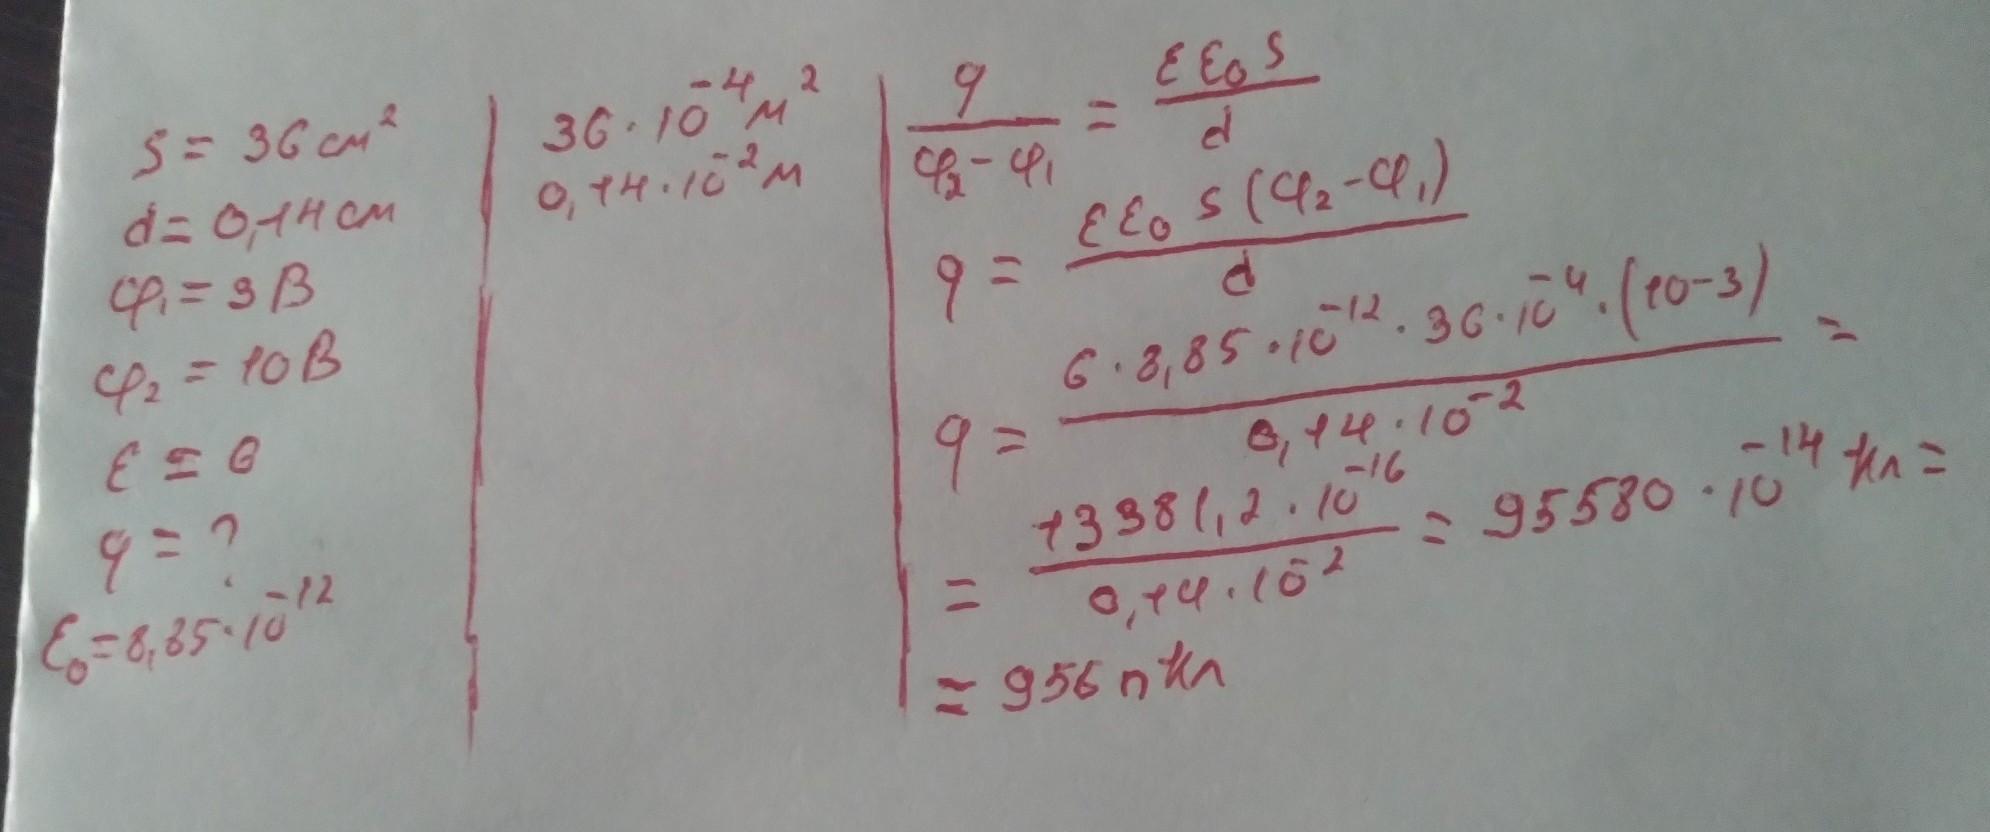 S = 36 см²
d = 0,14 см
φ₁ = 3 В
φ₂ = 10 В
ε = 6
q = ?
ε₀ = 8,85 · 10⁻¹²
36 · 10⁻⁴ м²
0,14 · 10⁻² м
q / (φ₂ - φ₁) = εε₀S / d
q = εε₀S(φ₂ - φ₁) / d
q = 6 · 8,85 · 10⁻¹² · 36 · 10⁻⁴ · (10-3) / 0,14 · 10⁻² =
= 13381,2 · 10⁻¹⁶ / 0,14 · 10⁻² = 95580 · 10⁻¹⁴ Кл =
= 956 пКл